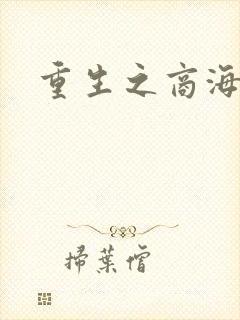 重生之商海
掃葉僧